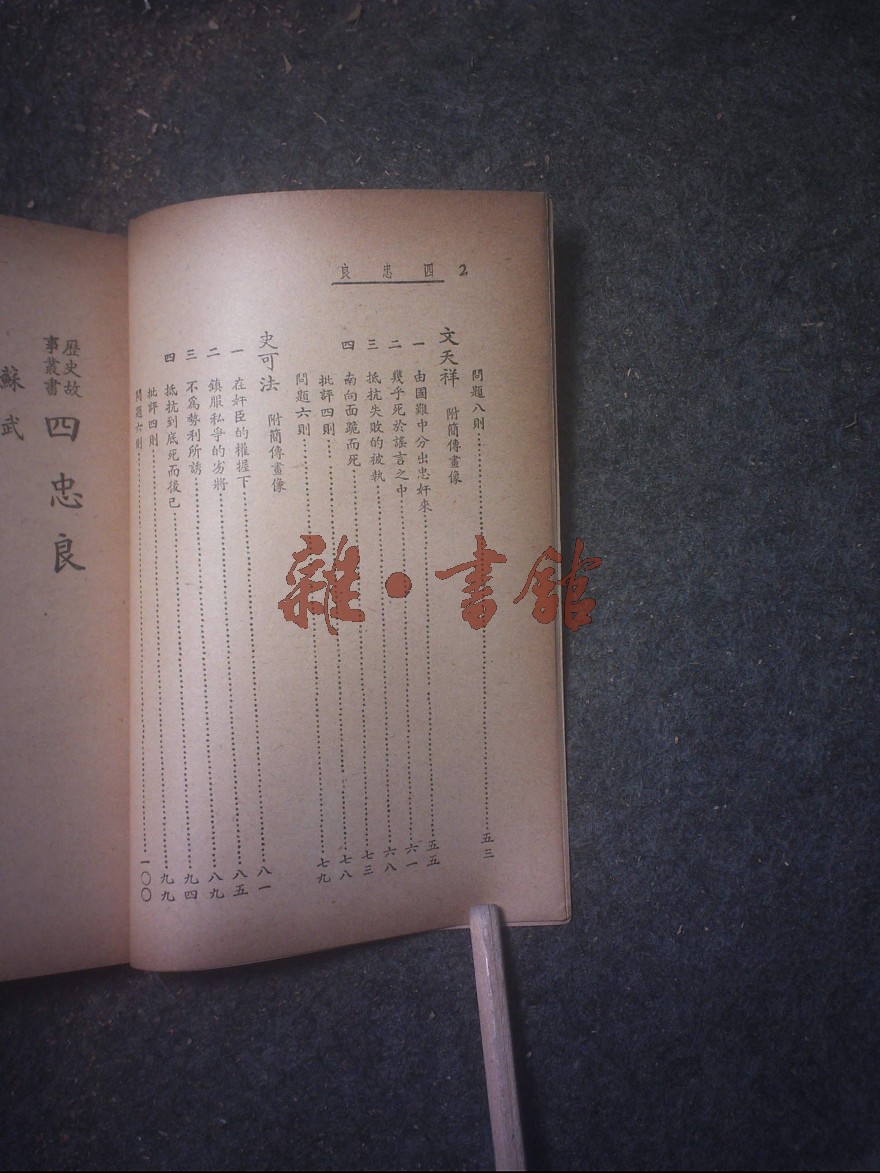 2 四忠良
問題八則……五三
文天祥 附簡傳畫像
一 由國難中分出忠奸來……五五
二 幾乎死於謠言之中……六一
三 抵抗失敗的被執……六八
四 南向面跪而死……七三
批評四則……七八
問題六則……七九
史可法 附簡傳畫像
一 在奸臣的權握下……八一
二 鎮服私爭的劣將……八五
三 不爲勢利所誘……八九
四 抵抗到底死而後已……九四
批評四則……九九
問題六則……一〇〇
歷史故
事叢書
四忠良
蘇武
雜·書館